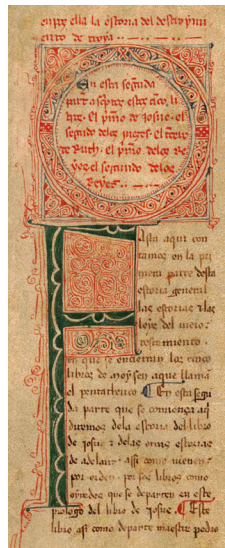 entre ella la estoria del destruymi
ento de troya
En esta segunda
part a septre estos cinco li
bros. El primo de Josue. el
segundo delos juezes. el tercero
de Ruth. el primo delos Re
yes el segundo delos
Reyes
Fasta aqui con
tamos en la pri
mera parte desta
estoria general
las estorias & las
leyes del uieio
testamiento
en que se encierran los cinco
libros de moysen aque llama
el pentateuco En esta segu
da parte que se comiença aq
diremos dela estoria del libro
de josue & delas otras estorias
de adelant. assi como uienen
por orden. por sos libros como
oyredes que se departen en este
prologo del libro de Josue. Este
libro assi como departe maestre pedro